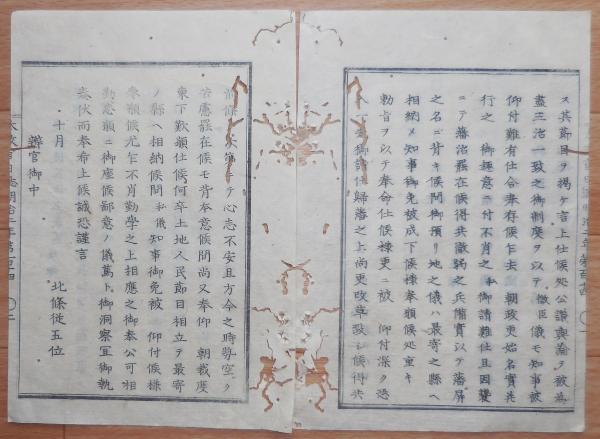 ス其節目ヲ掲ケ言上仕候処公議輿論ヲ被為
盡三治一致之御制度ヲ以テ微臣儀モ知事被
仰付難有仕合奉存候乍去 朝政更始名實共
行之 御趣意ニ付不肖之私御請難仕且因襲
ニテ藩治罷在候得共微弱之兵備實以テ藩屏
之名ニ背キ候間御預リ地之儀ハ最寄之縣ヘ
相納メ知事御免被成下候様奉願候処重キ
勅旨ヲ以テ奉命仕候様更ニ被 仰付深ク恐
入 御請仕歸藩之上尚更改革致シ候得共
心志不安且方今之時勢空ク
苦慮罷在候モ背本意候間尚又奉仰 朝裁度
東下歎願仕候何卒土地人民節目相立テ最寄
ノ縣ヘ相納候間私儀知事御免被 仰付候様
奉願候尤乍不肖勤學之上相應之御奉公可相
勤意願ニ御座候鄙意ノ儀篤ト御洞察宜御執
奏伏而奉希上候誠恐謹言
十月 北條從五位
辨官御中